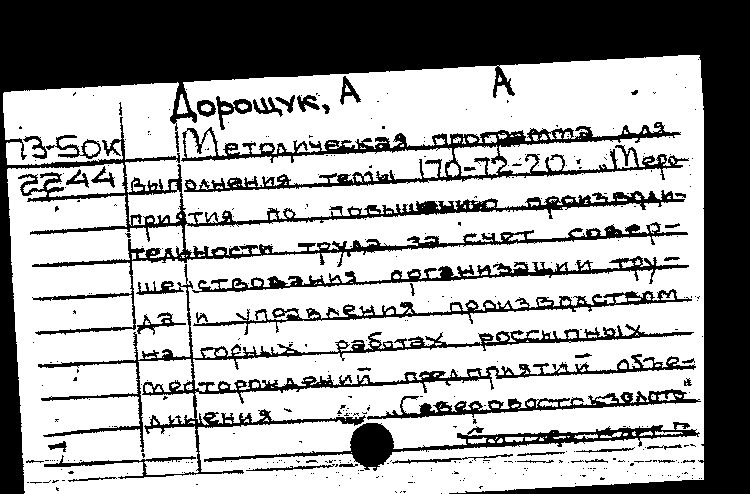 Дорощук, А А
73-50к Методическая программа для
2244 выполнения темы 170-72-20: „Меро-
приятия по повышению производи-
тельности труда за счет совер-
шенствования организации тру-
да и управления производством
на горных работах россыпных
месторождений предприятий объе-
динения „Северовостокзолото"
См. след. карт.